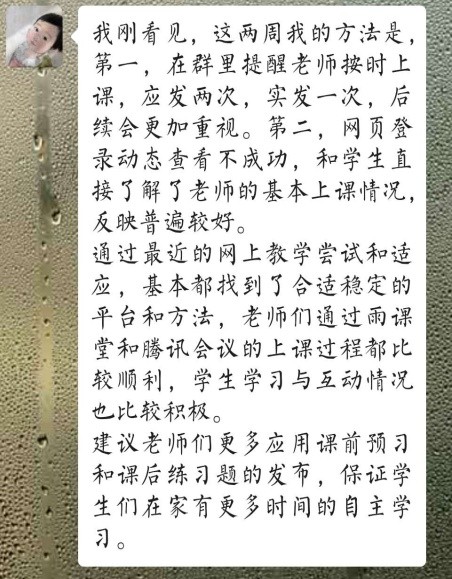 我刚看见，这两周我的方法是，
第一，在群里提醒老师按时上
课，应发两次，实发一次，后
续会更加重视。第二，网页登
录动态查看不成功，和学生直
接了解了老师的基本上课情况，
反映普遍较好。
通过最近的网上教学尝试和适
应，基本都找到了合适稳定的
平台和方法，老师们通过雨课
堂和腾讯会议的上课过程都比
较顺利，学生学习与互动情况
也比较积极。
建议老师们更多应用课前预习
和课后练习题的发布，保证学
生们在家有更多时间的自主学
习。